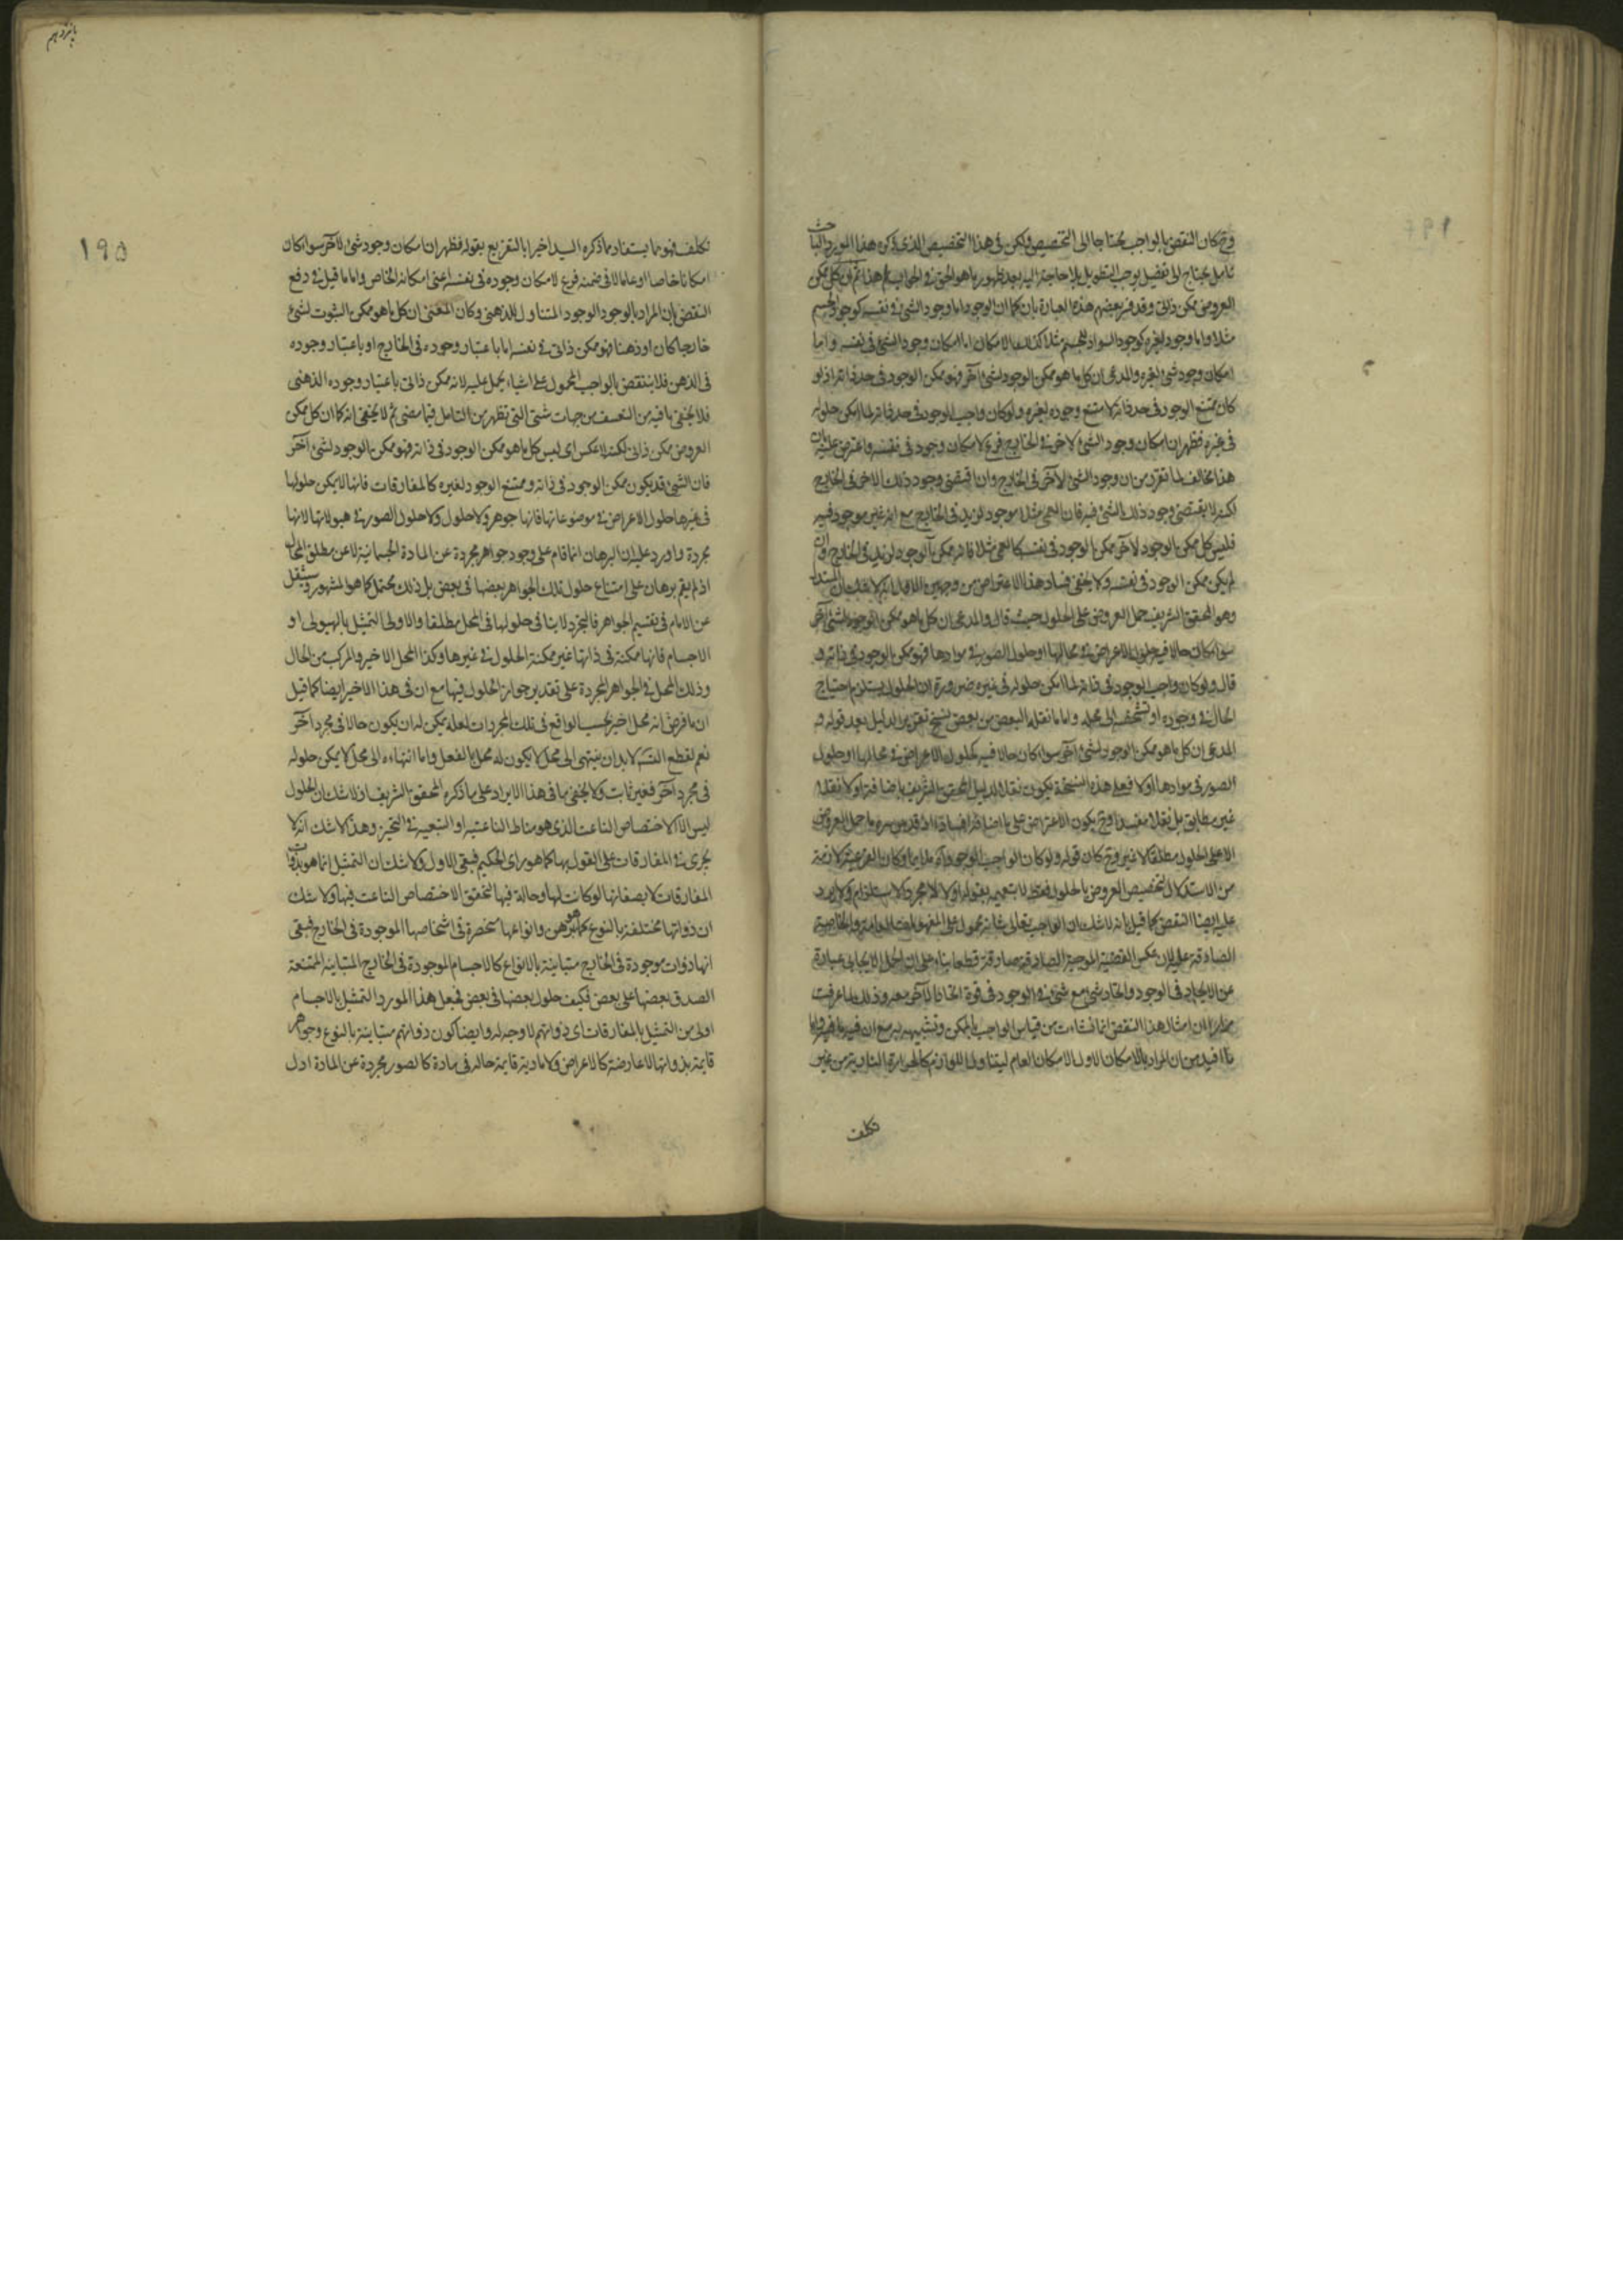 وح كان النقض بالواجب محتاجا الى التخصيص ولكن في هذا التخصيص الذي ذكره هذا المورد
تامل يحتاج الى تفصيل يوجب التطويل بلا حاجة اليه بعد ظهور ما هو الحق في الجواب هذا ثم ان كل ممكن
العروض ممكن ذاتي وقد فسر بعضهم هذه العبارة بان كما ان الوجود اما وجود الشئ في نفسه كوجود الجسم
مثلا واما وجود لغيره كوجود السواد للجسم مثلا كذلك الامكان اما امكان وجود الشئ في نفسه واما
امكان وجود شئ لغيره والمدعى ان كل ما هو ممكن الوجود لشئ آخر فهو ممكن الوجود في حد ذاته اذ لو
كان ممتنع الوجود في حد ذاته لامتنع وجوده لغيره ولو كان واجب الوجود في حد ذاته لما امكن حلوله
في غيره فظهر ان امكان وجود الشئ لاخر في الخارج فرع لامكان وجوده في نفسه واعترض عليه بان
هذا مخالف لما تقرر من ان وجود الشئ لآخر في الخارج وان اقتضى وجود ذلك الاخر في الخارج
لكنه لا يقتضى وجود ذلك الشئ فيه فان العمى مثلا موجود لزيد في الخارج مع انه غير موجود فيه
فليس كل ممكن الوجود لآخر ممكن الوجود في نفسه كالعمى مثلا فانه ممكن الوجود لزيد في الخارج وان
لم يكن ممكن الوجود في نفسه ولا يخفى فساد هذا الاعتراض من وجهين الاول انه لا شك ان المستدل
وهو المحقق الشريف حمل العروض على الحلول حيث قال والمدعى ان كل ما هو ممكن الوجود لشئ آخر
سواء كان حالا فيه كحلول الاعراض في محالها او حلول الصور في موادها فهو ممكن الوجود في ذاته و
قال ولو كان واجب الوجود في ذاته لما امكن حلوله في غيره ضرورة ان الحلول يستلزم احتياج
الحال في وجوده او تشخصه الى محله واما ما نقله البعض من بعض نسخ تقرير الدليل بعد قوله و
المدعى ان كل ما هو ممكن الوجود لشئ آخر سواء كان حالا فيه كحلول الاعراض في محالها او حلول
الصور في موادها اولا فعلى هذه النسخة يكون نقله لدليل المحقق الشريف باضافة اولا نقلا
غير مطابق بل نقلا مفسدا وح يكون الاعتراض على ما اضافه افسادا اذ قد من سره ما حمل العروض
الا على الحلول مطلقا لا غير وح كان قوله ولو كان الواجب الوجود آه ملايما وكان الفرعية لازمة
من الاستدلال لتخصيص العروض بالحلول فقط لا بتعميمه بقوله اولا لا مجرد الاستلزام ولا يرد
عليه ايضا النقض كما قيل بانه لا شك ان الواجب تعالى شانه محمول على المفهومات العامة والخاصة
الصادقة عليه لان عكس القضية الموجبة الصادقة صادقة قطعا بناء على ان الحمل الايجابي عبارة
عن الاتحاد في الوجود واتحاد شئ مع شئ في الوجود في قوة اتحاد الآخر معه وذلك لما عرفت
مرارا ان امثال هذا النقض انما نشات من قياس الواجب بالممكن وتشبيهه به مع ان فيه ما فيه واما
ما افيد من ان المراد بالامكان الاول الامكان العام ليتناول اللوازم كالحرارة النارية من غير
تكلف
پانزدهم
١٩٥
تكلف فهو مما يستفاد مما ذكره السيد اخيرا بالتفريع بقوله فظهر ان امكان وجود شئ لآخر سواء كان
امكانا خاصا او عاما لا في ضمنه فرع لامكان وجوده في نفسه اعنى امكانه الخاص واما ما قيل في دفع
النقض بان المراد بالوجود الوجود المتناول للذهنى وكان المعنى ان كل ما هو ممكن الثبوت لشئ
خارجا كان او ذهنا فهو ممكن ذاتي في نفسه اما باعتبار وجوده في الخارج او باعتبار وجوده
في الذهن فلا ينتقض بالواجب المحمول على اشياء يحمل عليه لانه ممكن ذاتي باعتبار وجوده الذهنى
فلا يخفى ما فيه من التعسف من جهات شتى التى تظهر من التامل فيما مضى ثم لا يخفى انه كما ان كل ممكن
العروض ممكن ذاتي لكنه لا عكس اى ليس كل ما هو ممكن الوجود في ذاته فهو ممكن الوجود لشئ آخر
فان الشئ قد يكون ممكن الوجود في ذاته وممتنع الوجود لغيره كالمفارقات فانها لا يمكن حلولها
في غيرها حلول الاعراض في موضوعاتها فانها جوهر ولا حلول ولا حلول الصور في هيولاتها لانها
مجردة واورد عليه ان البرهان انما قام على وجود جواهر مجردة عن المادة الجسمانية لا عن مطلق المحل
اذ لم يقم برهان على امتناع حلول تلك الجواهر بعضها في بعض بل ذلك محتمل كما هو المشهور وسينقل
عن الامام في تقسيم الجواهر فالتجرد لا ينافي حلولها في المحل مطلقا والاولى التمثيل بالهيولى او
الاجسام فانها ممكنة في ذاتها غير ممكنة الحلول في غيرها وكذا المحل الاخير والمركب من الحال
وذلك المحل في الجواهر المجردة على تقدير جواز الحلول فيها مع ان في هذا الاخير ايضا كما قيل
ان ما فرض انه محل اخير بحسب الواقع في تلك المجردات لعله يمكن له ان يكون حالا في مجرد آخر
نعم لقطع التسلسل لا بد ان ينتهى الى محل لا يكون له محل بالفعل واما انتهاءه الى محل لا يمكن حلوله
في مجرد آخر فغير ثابت ولا يخفى ما في هذا الايراد على ما ذكره المحقق الشريف اذ لا شك ان الحلول
ليس الا الاختصاص الناعت الذى هو مناط الناعتية او التبعية في التحيز وهذا لا شك انه لا
يجرى في المفارقات على القول بها كما هو راى الحكيم فبقى الاول ولا شك ان التمثيل انما هو بذوات
المفارقات لا بصفاتها لو كانت لها وحالة فيها لتحقق الاختصاص الناعت فيها ولا شك
ان ذواتها مختلفة بالنوع كما هو مبرهن وانواعها منحصرة في اشخاصها الموجودة في الخارج فبقى
انها ذوات موجودة في الخارج متباينة بالانواع كالاجسام الموجودة في الخارج المتباينة الممتنعة
الصدق بعضها على بعض فكيف حلول بعضها في بعض فجعل هذا المورد التمثيل بالاجسام
اولى من التمثيل بالمفارقات اى ذواتهم لا وجه له وايضا كون ذواتهم متباينة بالنوع وجواهر
قايمة بذواتها لا عارضة كالاعراض ولا مادية قايمة حالة في مادة كالصور مجردة عن المادة ادل